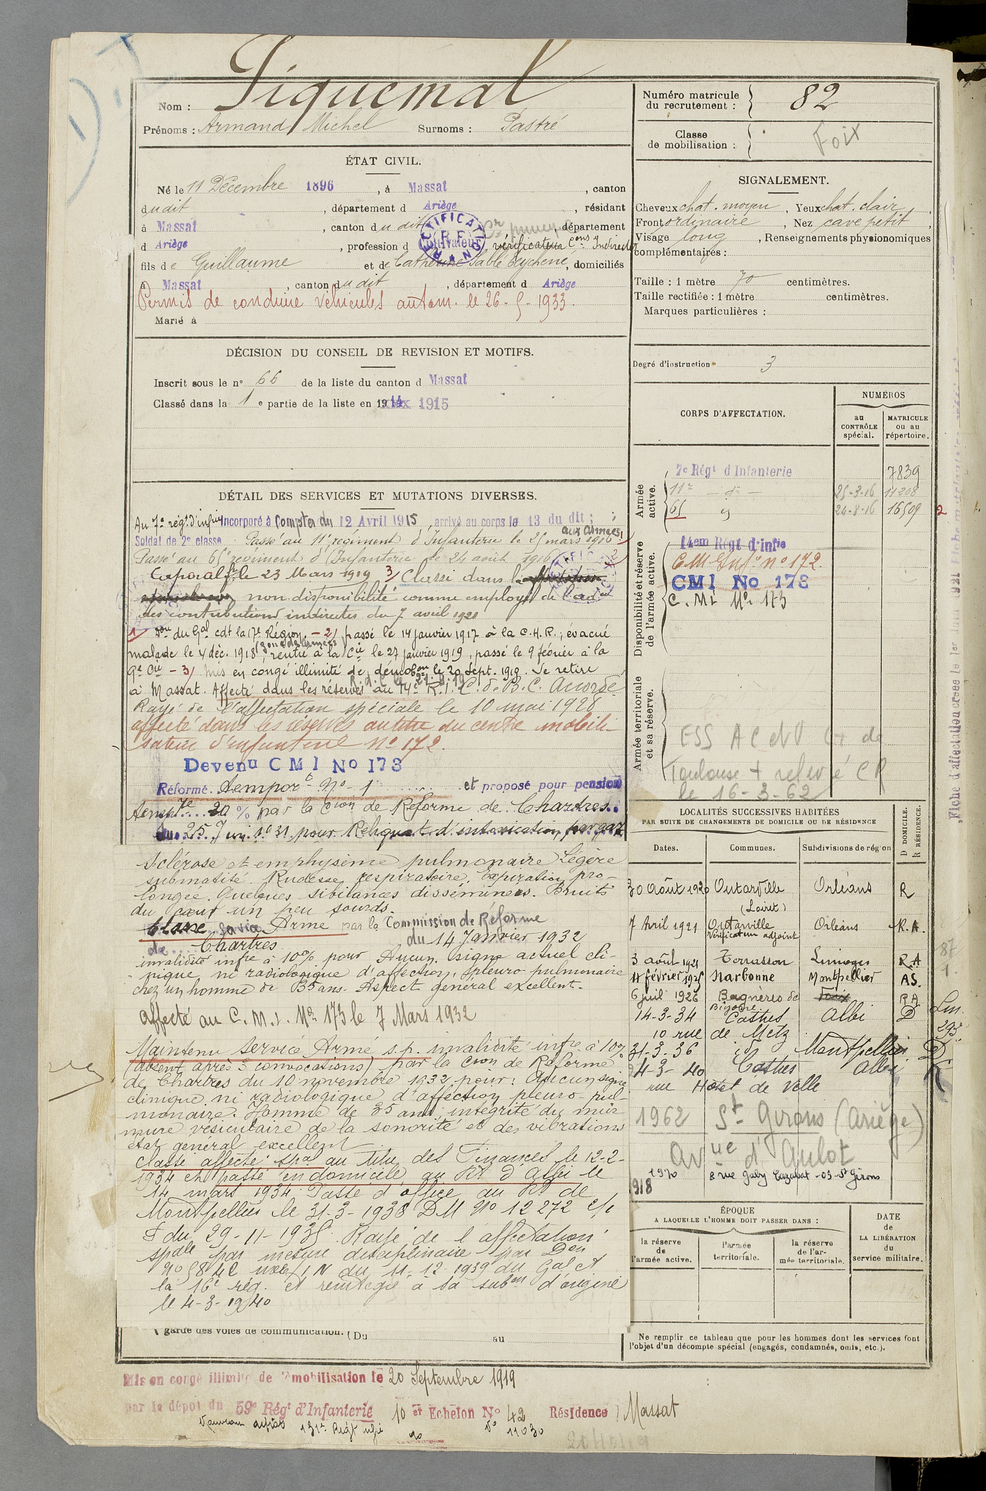 Piquemal
Nom :
Prénoms : Armand Michel Surnoms : Pastré
ÉTAT CIVIL.
Né le 11 Décembre 1896, à Massat, canton
dudit, département d Ariège, résidant
à Massat, canton dudit, département
d Ariège, profession de cultivateur vérificateur Cons Indirectes
RECTIFICATION R.F.
fils de Guillaume et de Catherine, domiciliés
à Massat, canton dudit, département d Ariège
Permis de conduire véhicules autom. le 26-5-1933
Marié à
DÉCISION DU CONSEIL DE REVISION ET MOTIFS.
Inscrit sous le n° 66 de la liste du canton d Massat
Classé dans la 1e partie de la liste en 1915
DÉTAIL DES SERVICES ET MUTATIONS DIVERSES.
Au 7e rég. d'infie Incorporé à compter du 12 Avril 1915, arrivé au corps le 13 du dit ;
Soldat de 2e classe. Passé au 11e régiment d'Infanterie le 25 mars 1916 aux Armées
Passé au 65e régiment d'Infanterie le 24 août 1916
Caporal le 23 Mars 1919 3/ Classé dans
non disponibilité comme employé de l'ad
des contributions indirectes du 7 avril 1921
du Gal cdt la 17e Région - 2/ passé le 14 janvier 1917 à la C.H.R., évacué
malade le 4 déc. 1918, rentré à la Cie le 27 janvier 1919, passé le 9 février à la
9e Cie - 3/ Mis en congé illimité de démobon le 20 Sept. 1919. Se retire
à Massat. Affecté dans les réserves au 14e R.I.
Rayé de l'affectation spéciale le 10 mai 1928
affecté dans les réserves au titre du centre mobili-
sateur d'Infanterie n° 172
Devenu CMI No 173
Réformé tempore No 1 et proposé pour pension
tempre 20 % par la Cion de Réforme de Chartres
du 25 pour Reliquat d'intoxication par gaz
Sclérose et emphysème pulmonaire Légère
submatité. Rudesse respiratoire, expiration pro-
longée. Quelques sibilances disséminées. Bruits
du Coeur un peu sourds.
Classé Service Armé par la Commission de Réforme
de Chartres du 14 Janvier 1932
invalidité infre à 10% pour Aucun signe actuel cli-
nique, ni radiologique d'affection pleuro pulmonaire
chez un homme de 35 ans. Aspect général excellent.
Affecté au C.M.I. No 173 le 7 Mars 1932
Maintenu Service Armé s.p. invalidité infre à 10%
(absent après 3 convocations) par la Cion de Réforme
de Chartres du 10 novembre 1932 pour : Aucun signe
clinique, ni radiologique d'affection pleuro-pul-
monaire. Homme de 35 ans, intégrité du mur-
mure vésiculaire de la sonorité et des vibrations
état général excellent
Classé affecté spal au titre des Finances le 12-2-
1934 et passé en domicile au Rt d'Albi le
14 mars 1934. Passé d'office au Rt de
Montpellier le 31-3-1938 DM No 12272
du 29-11-1935 Rayé de l'affectation
spale par mesure disciplinaire
du 11.12.1939 du Gal Ct
la 16e rég. et réintégré à la subon d'origine
le 4-3-1940
garde des voies de communication. (Du au
Mis en congé illimité de démobilisation le 20 Septembre 1919
par le dépot du 59e Régt d'Infanterie 10e Echelon No 42 Résidence Massat
Numéro matricule
du recrutement : 82
Classe
de mobilisation : Foix
SIGNALEMENT.
Cheveux chat. moyen, Yeux chat. clair,
Front ordinaire, Nez cave petit,
Visage long, Renseignements physionomiques
complémentaires :
Taille : 1 mètre 70 centimètres.
Taille rectifiée : 1 mètre centimètres.
Marques particulières :
Degré d'instruction 3
CORPS D'AFFECTATION.
NUMÉROS
au CONTRÔLE spécial.
MATRICULE ou au répertoire.
Armée active.
7e Régt d'Infanterie 7839
11e - d° - 25-3-16 11208
65 24-8-16 16509
Disponibilité et réserve de l'armée active.
14em Regt d'Infie
C.M. Infie n° 172.
CMI No 173
C.M.I. No 173
Armée territoriale et sa réserve.
ESS AC
Toulouse + relevé CR
le 16-3-62
LOCALITÉS SUCCESSIVES HABITÉES
PAR SUITE DE CHANGEMENTS DE DOMICILE OU DE RÉSIDENCE
Dates. Communes. Subdivisions de région D DOMICILE. R RÉSIDENCE.
30 Août 1920 Outarville (Loiret) Orléans R
7 Avril 1921 Outarville Vérificateur adjoint Orléans R.A.
3 août 1921 Terrasson Limoges R.A
11 février 1925 Narbonne Montpellier AS.
6 juil 1926 Bagnères de Bigorre R.A
14-3-34 Castres Albi D
10 rue de Metz
31-3-36 Montpellier D
4-3-40 Castres Albi
rue Hotel de Ville
1962 St Girons (Ariège)
Avue d'Aulot
1970
ÉPOQUE
A LAQUELLE L'HOMME DOIT PASSER DANS :
la réserve de l'armée active.
l'armée territoriale.
la réserve de l'armée territoriale.
DATE DE LA LIBÉRATION du service militaire.
Ne remplir ce tableau que pour les hommes dont les services font
l'objet d'un décompte spécial (engagés, condamnés, omis, etc.).